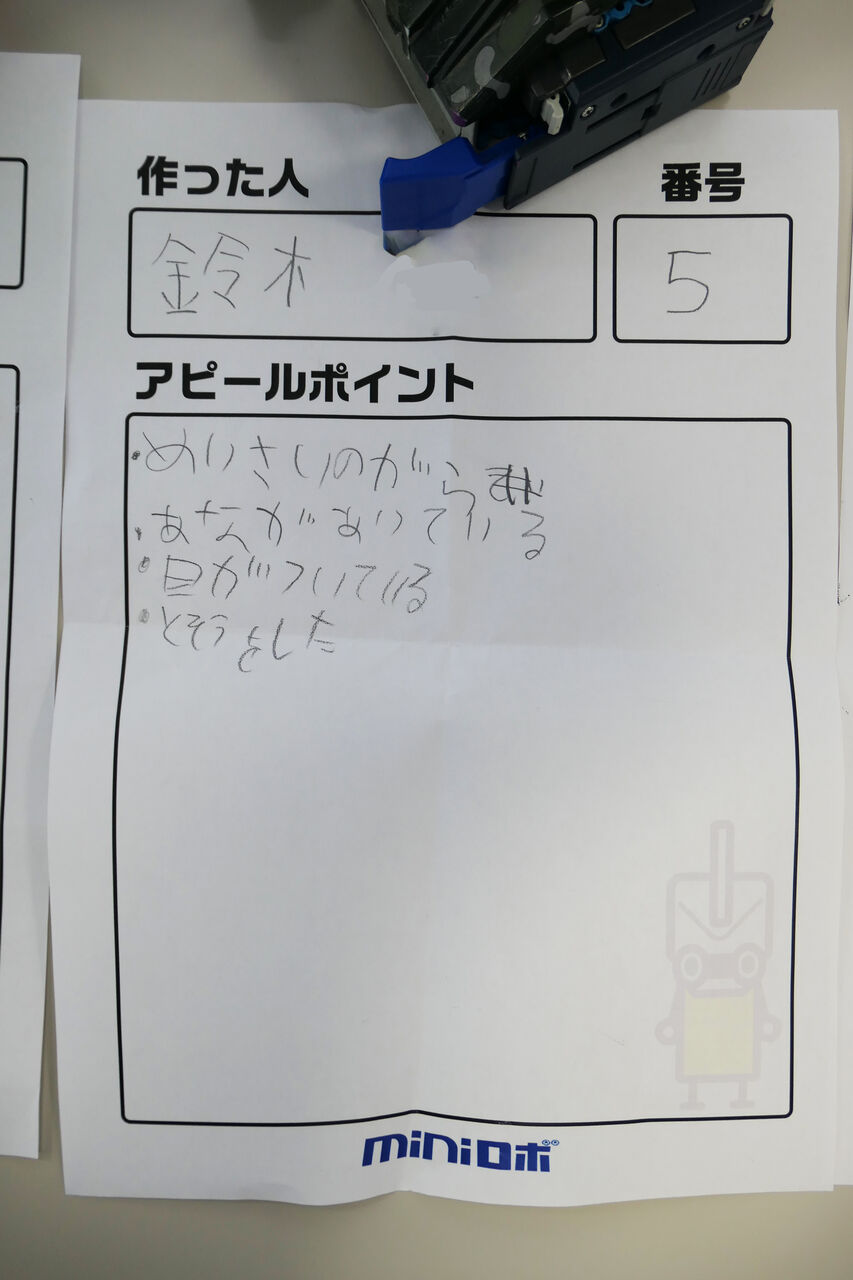 作った人
番号
鈴木
5
アピールポイント
・めいさいのがら
・あながあいている
・目がついている
・とそうをした
miniロボ